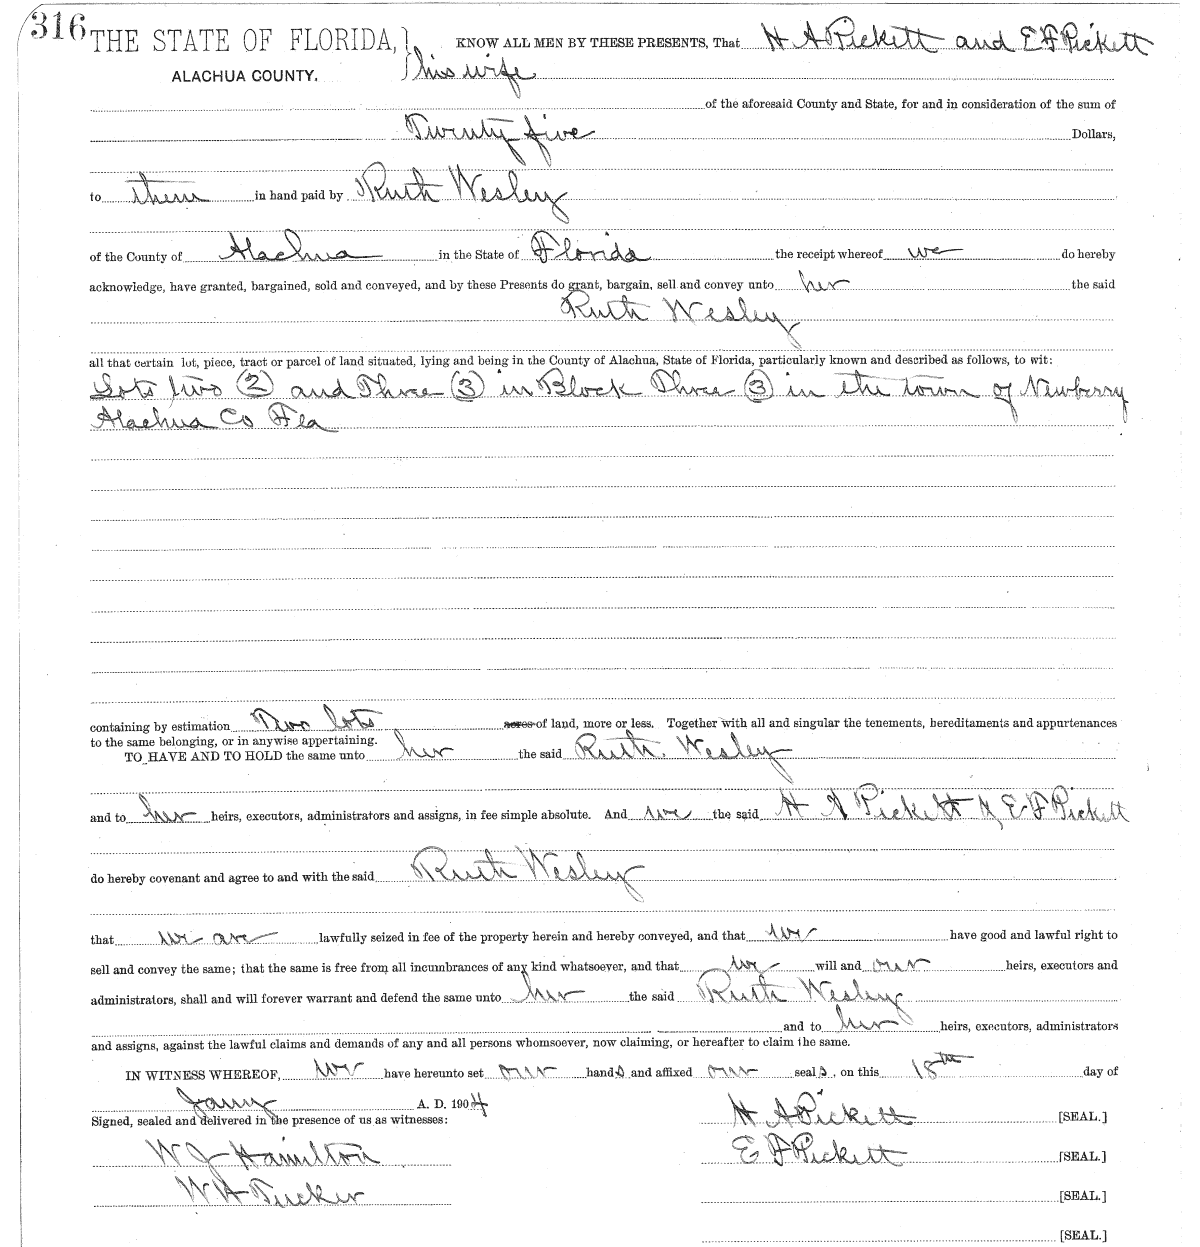 316
THE STATE OF FLORIDA, } KNOW ALL MEN BY THESE PRESENTS, That H A Pickett and E F Pickett
ALACHUA COUNTY. his wife
of the aforesaid County and State, for and in consideration of the sum of
Twenty five Dollars,
to them in hand paid by Ruth Wesley
of the County of Alachua in the State of Florida the receipt whereof we do hereby
acknowledge, have granted, bargained, sold and conveyed, and by these Presents do grant, bargain, sell and convey unto her the said
Ruth Wesley
all that certain lot, piece, tract or parcel of land situated, lying and being in the County of Alachua, State of Florida, particularly known and described as follows, to wit:
Lots two (2) and Three (3) in Block Three (3) in the town of Newberry
Alachua Co Fla
containing by estimation Two lots acres of land, more or less. Together with all and singular the tenements, hereditaments and appurtenances
to the same belonging, or in anywise appertaining.
TO HAVE AND TO HOLD the same unto her the said Ruth Wesley
and to her heirs, executors, administrators and assigns, in fee simple absolute. And we the said H A Pickett & E F Pickett
do hereby covenant and agree to and with the said Ruth Wesley
that we are lawfully seized in fee of the property herein and hereby conveyed, and that we have good and lawful right to
sell and convey the same; that the same is free from all incumbrances of any kind whatsoever, and that we will and our heirs, executors and
administrators, shall and will forever warrant and defend the same unto her the said Ruth Wesley
and to her heirs, executors, administrators
and assigns, against the lawful claims and demands of any and all persons whomsoever, now claiming, or hereafter to claim the same.
IN WITNESS WHEREOF, we have hereunto set our hands and affixed our seals, on this 18th day of
Jany A. D. 1904
Signed, sealed and delivered in the presence of us as witnesses: H A Pickett [SEAL.]
W J Hamilton E F Pickett [SEAL.]
W H Tucker [SEAL.]
[SEAL.]